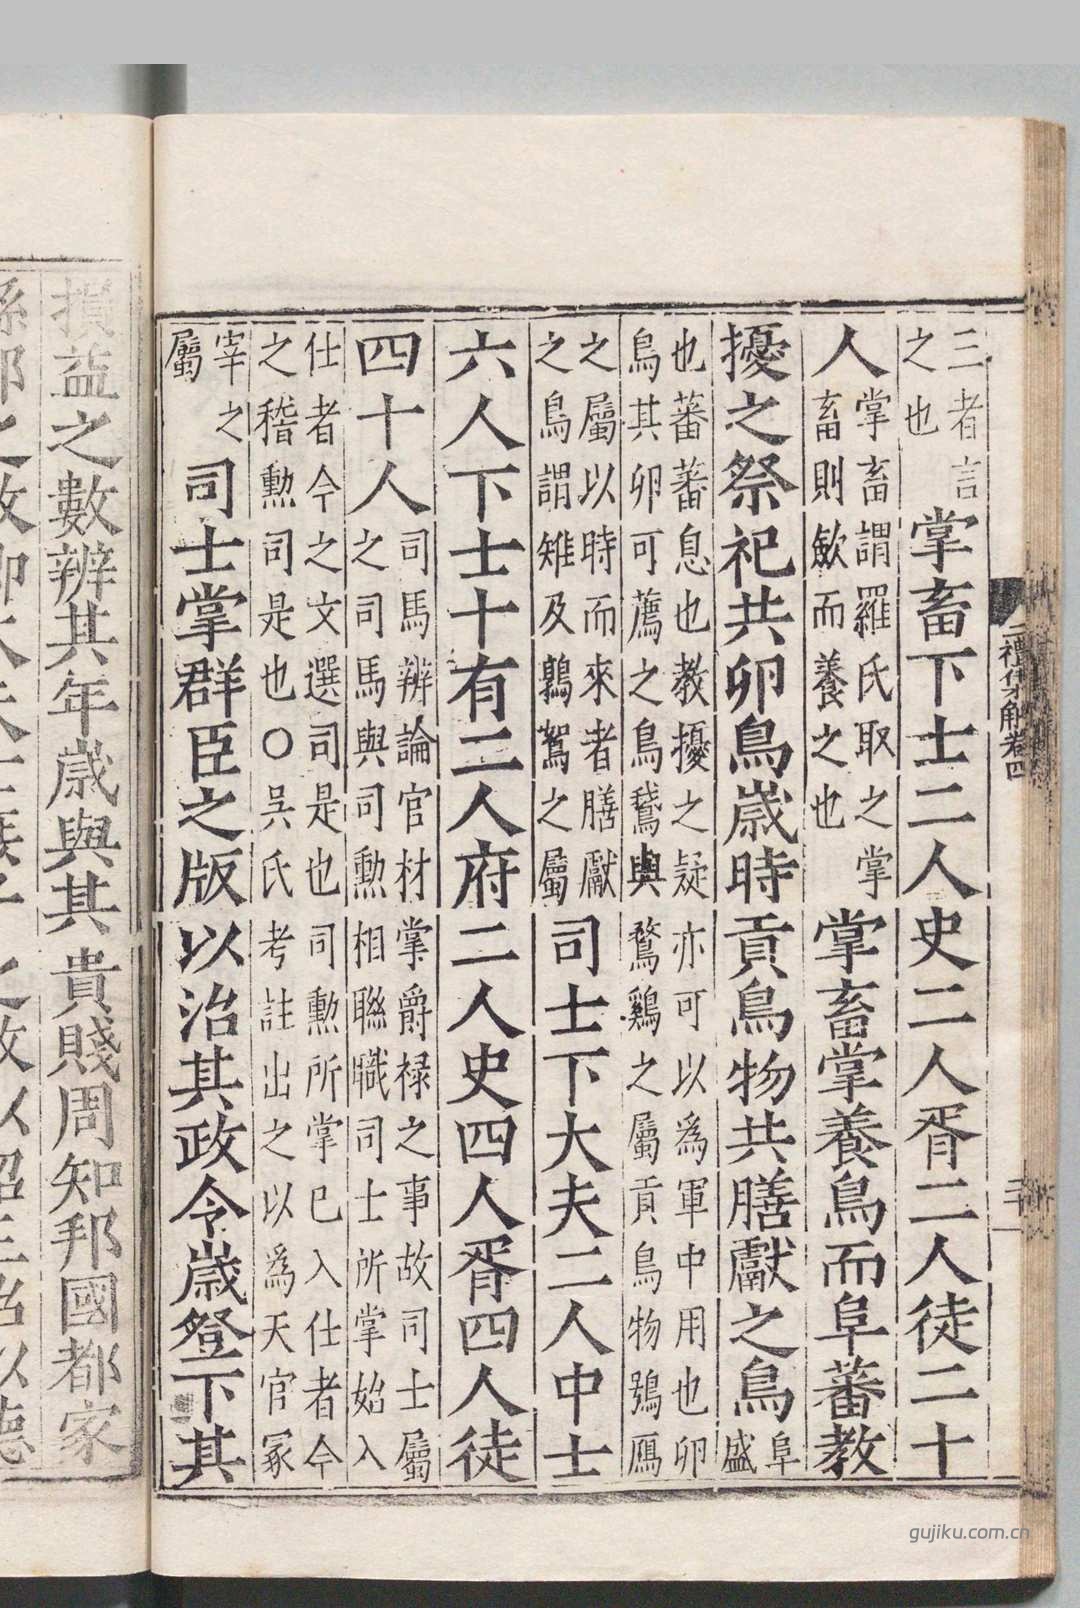 三者言
之也
掌畜下士二人史二人胥二人徒二十
人
掌畜謂羅氏取之掌
畜則歛而養之也
掌畜掌養鳥而阜蕃教
擾之祭祀共卵鳥歲時貢鳥物共膳獻之鳥
阜
盛
也蕃蕃息也教擾之疑亦可以為軍中用也卵
鳥其卵可薦之鳥鵞與鶩鷄之屬貢鳥物鴞鴈
之屬以時而來者膳獻
之鳥謂雉及鶉鴽之屬
司士下大夫二人中士
六人下士十有二人府二人史四人胥四人徒
四十人
司馬辨論官材掌爵禄之事故司士屬
之司馬與司勲相聯職司士所掌始入
仕者今之文選司是也司勲所掌已入仕者今
之稽勲司是也○吳氏考註出之以為天官冢
宰之
屬
司士掌群臣之版以治其政令歲登下其
損益之數辨其年歲與其貴賤周知邦國都家
二禮集解卷四
三十一
gujiku.com.cn